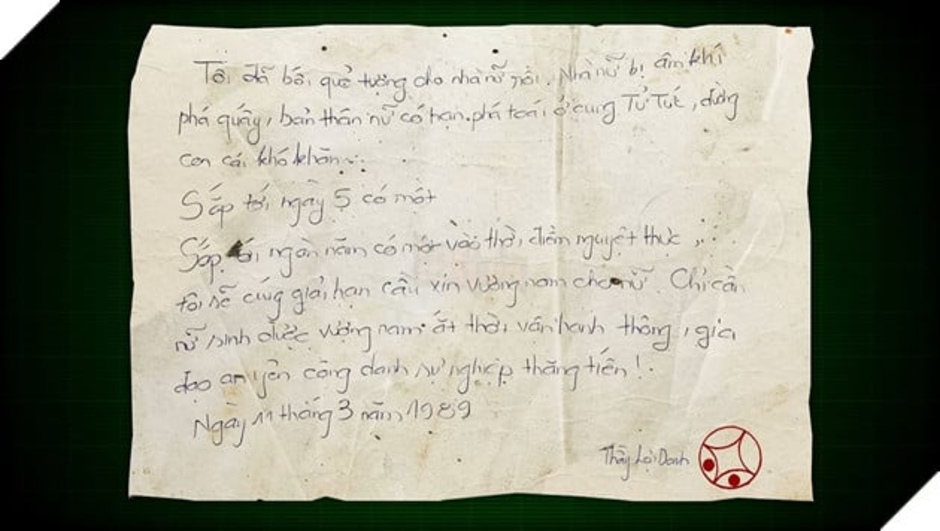 Tôi đã bói quẻ tượng cho nhà nữ rồi. Nhà nữ bị âm khí
phá quấy, bản thân nữ có hạn phá toái ở cung Tử Tức, đường
con cái khó khăn...
Sắp tới ngày 5 có một
Sắp tới ngàn năm có một vào thời điểm nguyệt thực,
tôi sẽ cúng giải hạn cầu xin vượng nam cho nữ. Chỉ cần
nữ sinh được vượng nam ắt thời vận hanh thông, gia
đạo an yên công danh sự nghiệp thăng tiến!
Ngày 11 tháng 3 năm 1989
Thầy Lợi Danh